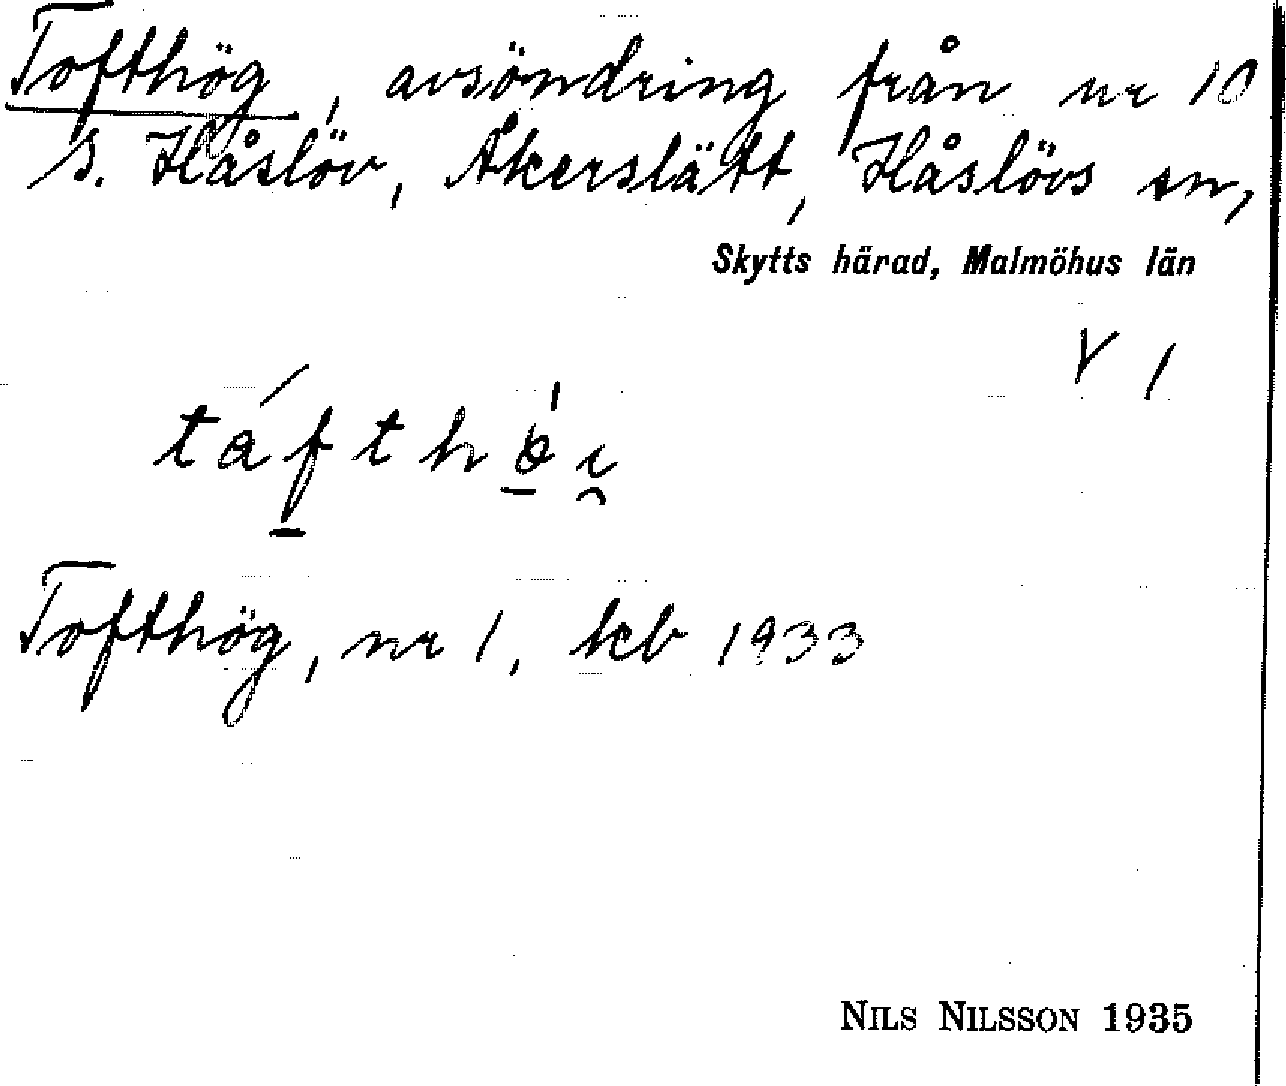 Tofthög, avsöndring från nr 10
S. Håslöv, Åkerslätt, Håslövs sn,
Skytts härad, Malmöhus län
V 1
táfthö̀ı
Tofthög, nr 1, kb 1933
NILS NILSSON 1935